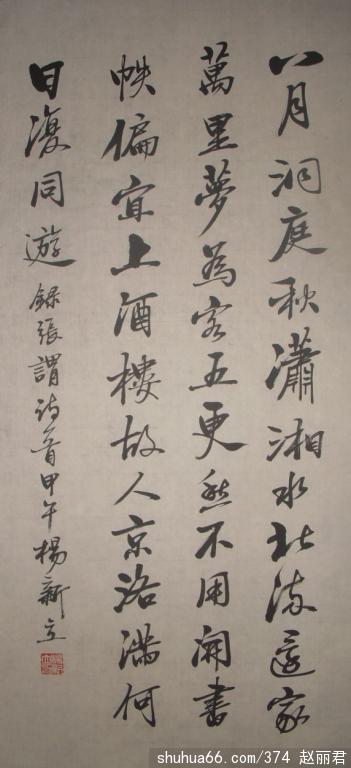 八月洞庭秋瀟湘水北流還家
萬里夢為客五更愁不用開書
帙偏宜上酒樓故人京洛满何
日復同遊
錄張謂詩首甲午楊新立
shuhua66.com/374 赵丽君